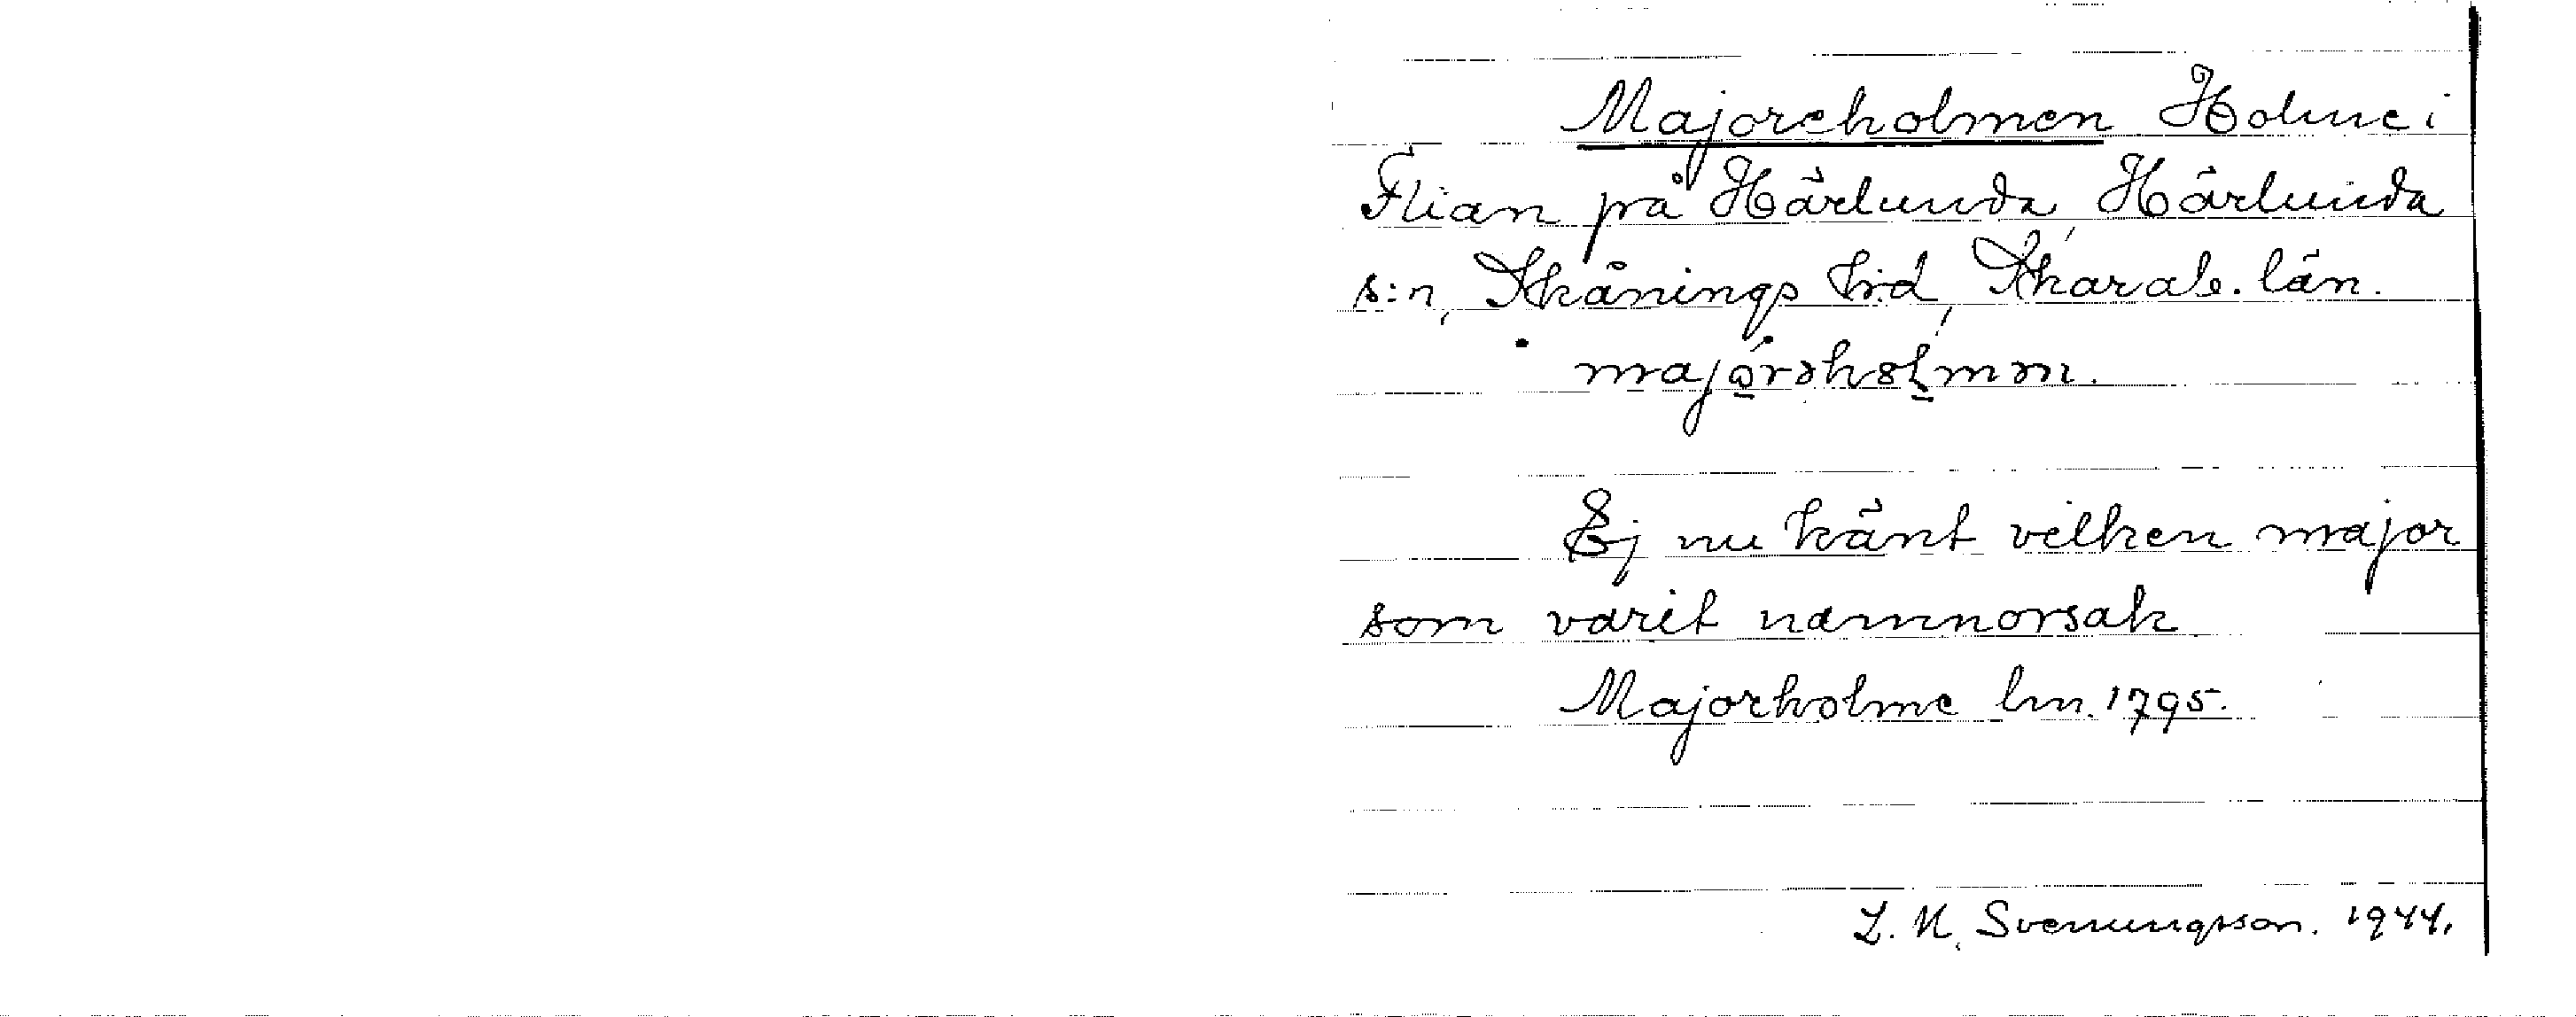 Majoreholmen Holme i
Flian på Härlunda, Härlunda
s:n, Skånings hd, Skarab. län.
majǫ́rəhol̬mən.
Ej nu känt vilken major
som varit namnorsak
Majorholme lm. 1795.
L. M. Svenungsson. 1944.